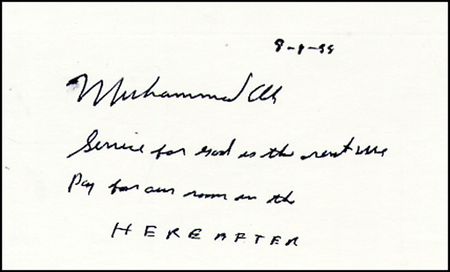 8-1-99
Muhammad Ali
Service for God is the rent we
Pay for our room in the
HEREAFTER